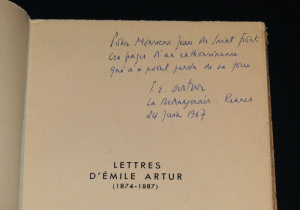 Pour Monsieur Jean de Saint Front
Ces pages d'un enthousiasme
qui n'a point perdu de sa force.
E. Artur
La Bernayerais. Rennes
24 Juin 1967
LETTRES
D'ÉMILE ARTUR
(1874-1887)